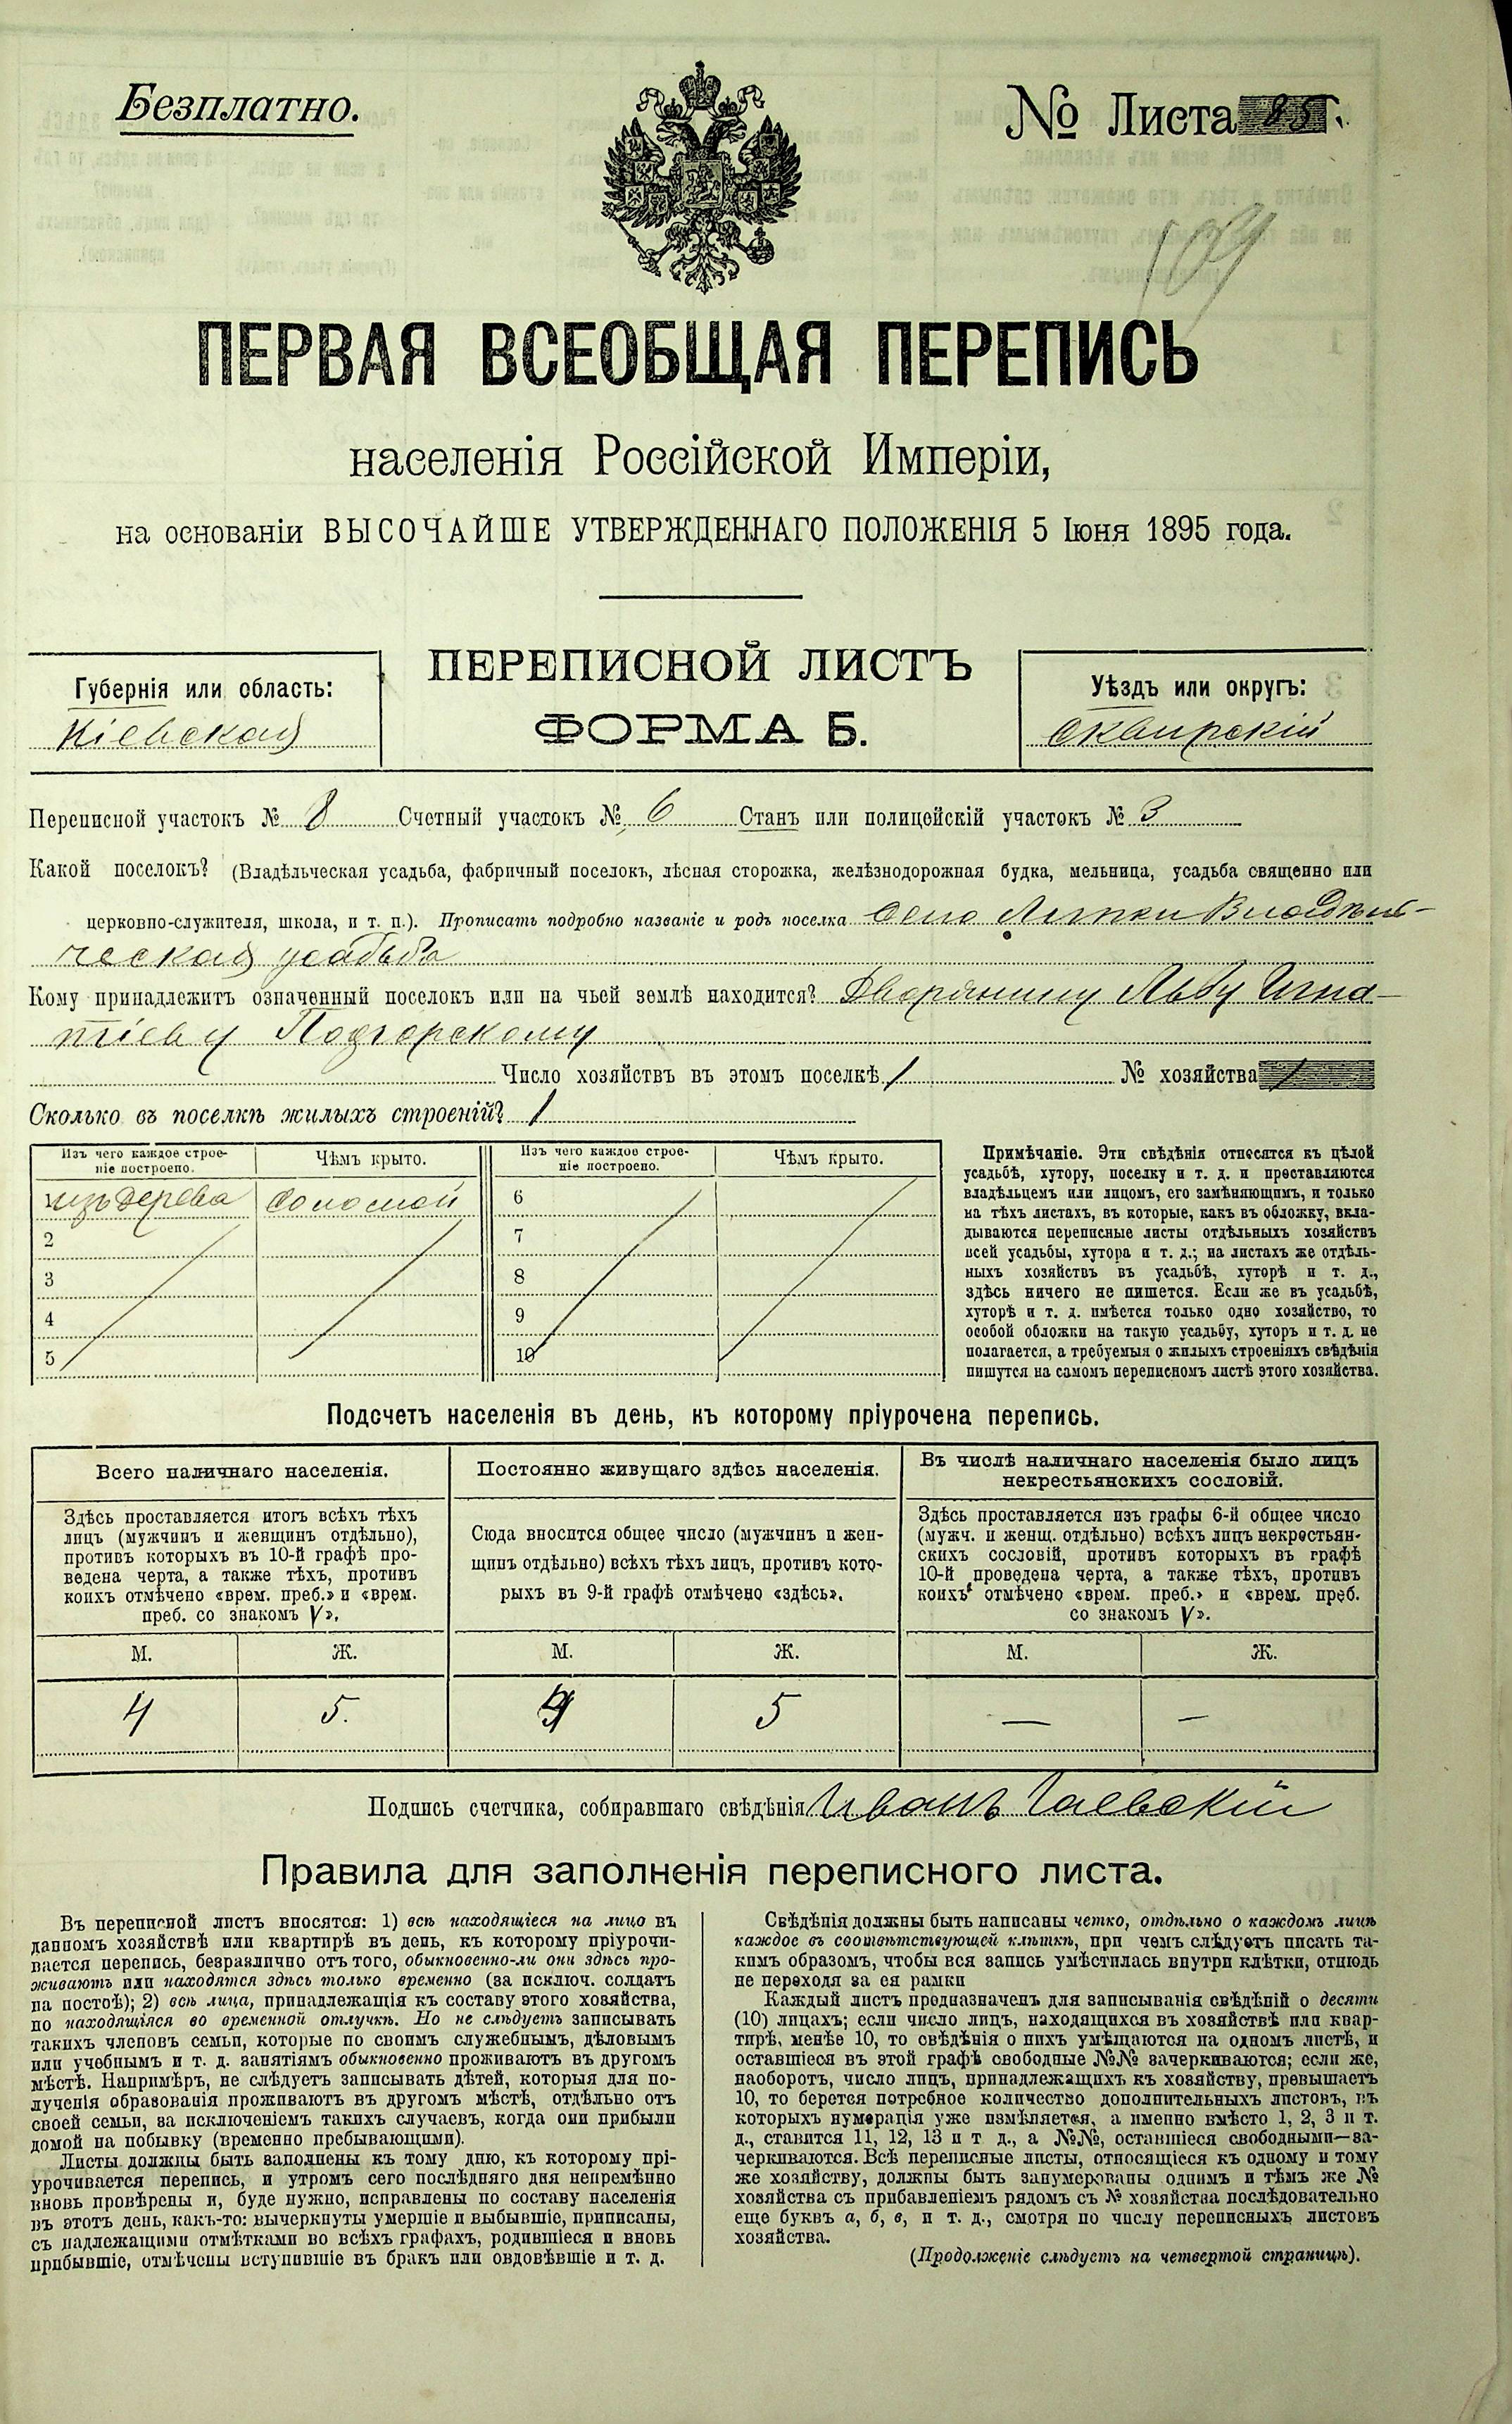 Безплатно.
№ Листа 85.
109
ПЕРВАЯ ВСЕОБЩАЯ ПЕРЕПИСЬ
населенія Россійской Имперіи,
на основаніи ВЫСОЧАЙШЕ УТВЕРЖДЕННАГО ПОЛОЖЕНІЯ 5 Іюня 1895 года.
Губернія или область:
Кіевская
ПЕРЕПИСНОЙ ЛИСТЪ
ФОРМА Б.
Уѣздъ или округъ:
Сквирскій
Переписной участокъ № 8 Счетный участокъ № 6 Станъ или полицейскій участокъ № 3
Какой поселокъ? (Владѣльческая усадьба, фабричный поселокъ, лѣсная сторожка, желѣзнодорожная будка, мельница, усадьба священно или
церковно-служителя, школа, и т. п.). Прописать подробно названіе и родъ поселка Село Владѣль-
ческая усадьба
Кому принадлежитъ означенный поселокъ или на чьей землѣ находится? Дворянину Льву Игна-
тіеву Подгорскому
Число хозяйствъ въ этомъ поселкѣ 1 № хозяйства 1
Сколько въ поселкѣ жилыхъ строеній? 1
Изъ чего каждое строе-
ніе построено.
Чѣмъ крыто.
Изъ чего каждое строе-
ніе построено.
Чѣмъ крыто.
1 изъ дерева Соломой 6
2 7
3 8
4 9
5 10
Примѣчаніе. Эти свѣдѣнія относятся къ цѣлой
усадьбѣ, хутору, поселку и т. д. и проставляются
владѣльцемъ или лицомъ, его замѣняющимъ, и только
на тѣхъ листахъ, въ которые, какъ въ обложку, вкла-
дываются переписные листы отдѣльныхъ хозяйствъ
всей усадьбы, хутора и т. д.; на листахъ же отдѣль-
ныхъ хозяйствъ въ усадьбѣ, хуторѣ и т. д.,
здѣсь ничего не пишется. Если же въ усадьбѣ,
хуторѣ и т. д. имѣется только одно хозяйство, то
особой обложки на такую усадьбу, хуторъ и т. д. не
полагается, а требуемыя о жилыхъ строеніяхъ свѣдѣнія
пишутся на самомъ переписномъ листѣ этого хозяйства.
Подсчетъ населенія въ день, къ которому пріурочена перепись.
Всего наличнаго населенія.
Здѣсь проставляется итогъ всѣхъ тѣхъ
лицъ (мужчинъ и женщинъ отдѣльно),
противъ которыхъ въ 10-й графѣ про-
ведена черта, а также тѣхъ, противъ
коихъ отмѣчено «врем. преб.» и «врем.
преб. со знакомъ V».
М. Ж.
4 5.
Постоянно живущаго здѣсь населенія.
Сюда вносится общее число (мужчинъ и жен-
щинъ отдѣльно) всѣхъ тѣхъ лицъ, противъ кото-
рыхъ въ 9-й графѣ отмѣчено «здѣсь».
М. Ж.
4 5
Въ числѣ наличнаго населенія было лицъ
некрестьянскихъ сословій.
Здѣсь проставляется изъ графы 6-й общее число
(мужч. и женщ. отдѣльно) всѣхъ лицъ некрестьян-
скихъ сословій, противъ которыхъ въ графѣ
10-й проведена черта, а также тѣхъ, противъ
коихъ отмѣчено «врем. преб.» и «врем. преб.
со знакомъ V».
М. Ж.
— —
Подпись счетчика, собиравшаго свѣдѣнія Иванъ Гаевскій
Правила для заполненія переписного листа.
Въ переписной листъ вносятся: 1) всѣ находящіеся на лицо въ
данномъ хозяйствѣ или квартирѣ въ день, къ которому пріурочи-
вается перепись, безразлично отъ того, обыкновенно-ли они здѣсь про-
живаютъ или находятся здѣсь только временно (за исключ. солдатъ
на постоѣ); 2) всѣ лица, принадлежащія къ составу этого хозяйства,
но находящіяся во временной отлучкѣ. Но не слѣдуетъ записывать
такихъ членовъ семьи, которые по своимъ служебнымъ, дѣловымъ
или учебнымъ и т. д. занятіямъ обыкновенно проживаютъ въ другомъ
мѣстѣ. Напримѣръ, не слѣдуетъ записывать дѣтей, которыя для по-
лученія образованія проживаютъ въ другомъ мѣстѣ, отдѣльно отъ
своей семьи, за исключеніемъ такихъ случаевъ, когда они прибыли
домой на побывку (временно пребывающими).
Листы должны быть заполнены къ тому дню, къ которому прі-
урочивается перепись, и утромъ сего послѣдняго дня непремѣнно
вновь провѣрены и, буде нужно, исправлены по составу населенія
въ этотъ день, какъ-то: вычеркнуты умершіе и выбывшіе, приписаны,
съ надлежащими отмѣтками во всѣхъ графахъ, родившіеся и вновь
прибывшіе, отмѣчены вступившіе въ бракъ или овдовѣвшіе и т. д.
Свѣдѣнія должны быть написаны четко, отдѣльно о каждомъ лицѣ
каждое въ соотвѣтствующей клѣткѣ, при чемъ слѣдуетъ писать та-
кимъ образомъ, чтобы вся запись умѣстилась внутри клѣтки, отнюдь
не переходя за ея рамки
Каждый листъ предназначенъ для записыванія свѣдѣній о десяти
(10) лицахъ; если число лицъ, находящихся въ хозяйствѣ или квар-
тирѣ, менѣе 10, то свѣдѣнія о нихъ умѣщаются на одномъ листѣ, и
оставшіеся въ этой графѣ свободные №№ зачеркиваются; если же,
наоборотъ, число лицъ, принадлежащихъ къ хозяйству, превышаетъ
10, то берется потребное количество дополнительныхъ листовъ, въ
которыхъ нумерація уже измѣняется, а именно вмѣсто 1, 2, 3 и т.
д., ставится 11, 12, 13 и т д., а №№, оставшіеся свободными—за-
черкиваются. Всѣ переписные листы, относящіеся къ одному и тому
же хозяйству, должны быть занумерованы однимъ и тѣмъ же №
хозяйства съ прибавленіемъ рядомъ съ № хозяйства послѣдовательно
еще буквъ а, б, в, и т. д., смотря по числу переписныхъ листовъ
хозяйства.
(Продолженіе слѣдуетъ на четвертой страницѣ).